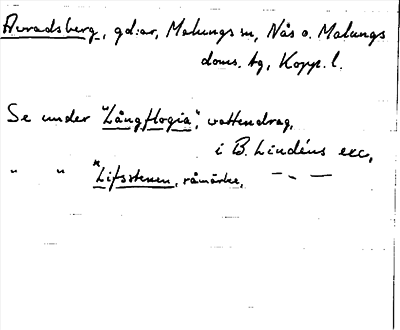 Avradsberg, gd:ar, Malungs sn, Nås o. Malungs
doms. tg, Kopp. l.
Se under "Långflogia", vattendrag,
i B. Lindéns exc,
" " "Lifsstenen, råmärke, — " —